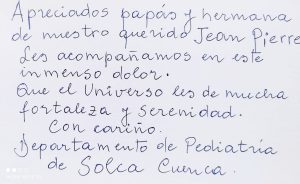 Apreciados papás y hermana
de nuestro querido Jean Pierre
Les acompañamos en este
inmenso dolor.
Que el Universo les de mucha
fortaleza y serenidad.
Con cariño.
Departamento de Pediatría
de Solca Cuenca.